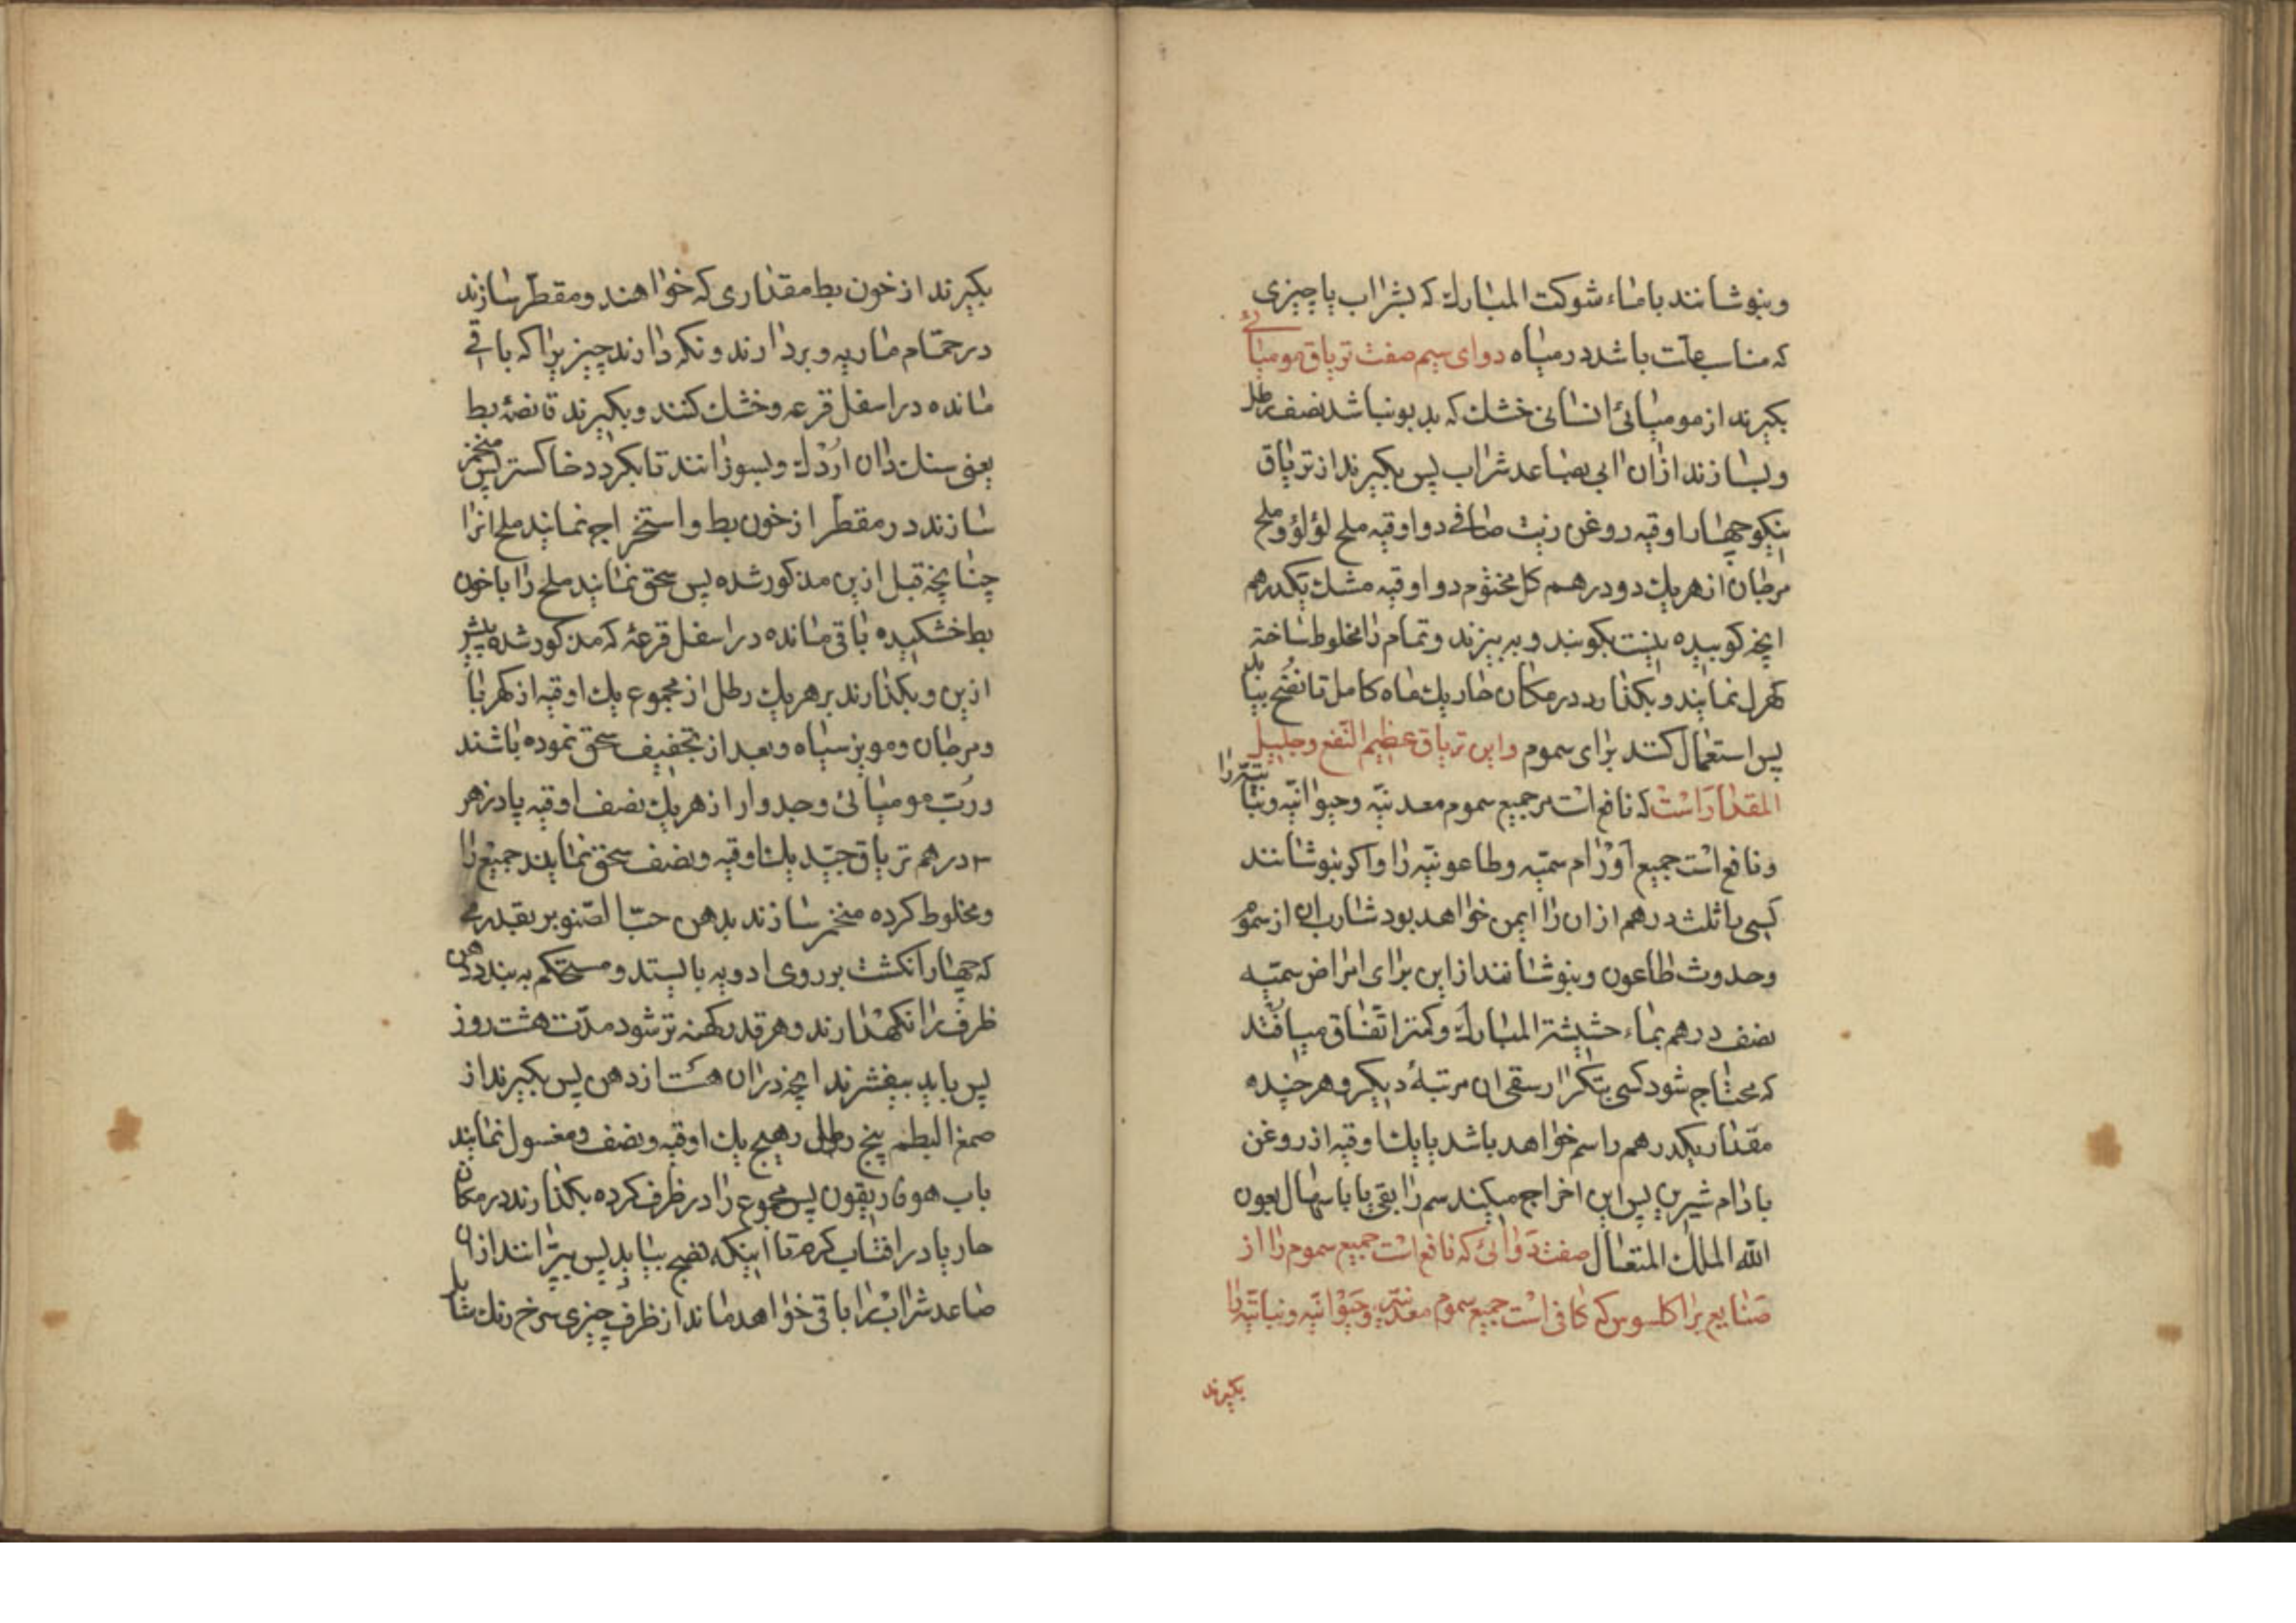 وبنوشانند باماء شوکت المبارك که بشراب یا چیزی
که مناسب علت باشد در میاه دوای سیم صفت تریاق مومیائی
بکیرند از مومیائی انسانی خشك که بد بو نباشد نصف رطل
وبسازند ازان ابی بصاعد شراب پس بکیرند از تریاق
نیکو چهار اوقیه روغن زیت صافی دو اوقیه ملح لؤلؤ وملح
مرجان از هر یك دو درهم کل مختوم دو اوقیه مشك یکدرهم
انچه کوبیده نیست بکوبند و به بیزند وتمام را مخلوط ساخته
کهرل نمایند و بکذارد در مکان حار یك ماه کامل تا نضج بیابد
پس استعمال کنند برای سموم واین تریاق عظیم النفع وجلیل
المقدار است که نافع است مر جمیع سموم معدنیه وحیوانیه ونباتیه را
ونافع است جمیع اورام سمیه وطاعونیه را واکر بنوشانند
کسی را ثلث درهم ازان را ایمن خواهد بود شارب ان از سموم
وحدوث طاعون وبنوشانند از این برای امراض سمیه
نصف درهم بماء حشیشة المبارك وکمتر اتفاق میافتد
که محتاج شود کسی بتکرار سقی ان مرتبهٔ دیکر وهر چند ه
مقدار یکدرهم راسم خواهد باشد یا یك اوقیه از روغن
بادام شیرین پس این اخراج میکند سم را بقی یا باسهال بعون
الله الملك المتعال صفت دوائی که نافع است جمیع سموم را از
صنایع براکلسوس که کافی است جمیع سموم معدنیه وحیوانیه ونباتیه را
بکیرند
بکیرند از خون بط مقداری که خواهند ومقطر سازند
در حمّام ماریه و بردارند و نکه دارند چیزیرا که باقی
مانده در اسفل قرعه وخشك کنند و بکیرند قانصهٔ بط
یعنی سنك دان اردك وبسوزانند تا بکردد خاکستر پس منخمر
سازند در مقطر از خون بط واستخراج نمایند ملح انرا
چنانچه قبل ازین مذکور شده پس سحق نمایند ملح را با خون
بط خشکیده باقی مانده در اسفل قرعهٔ که مذکور شده پیشتر
ازین وبکذارند بر هر یك رطل از مجموع یك اوقیه از کهربا
ومرجان ومویز سیاه وبعد از تجفیف سحق نموده باشند
وربّ مومیائی وجدوار از هر یك نصف اوقیه پادزهر
۳ درهم تریاق جیّد یك اوقیه ونصف سحق نمایند جمیع را
ومخلوط کرده منخمر سازند بدهن حبّ الصّنوبر بقدریکه
که چهار انکشت بر روی ادویه بایستد و مستحکم به بندد دهن
ظرف را نکهدارند وهر قدر کهنه تر شود مدّت هشت روز
پس باید بیفشرند انچه دران هست از دهن پس بکیرند از
صمغ البطم پنج رطل رهیج یك اوقیه ونصف ومغسول نمایند
باب هوفاریقون پس مجموع را در ظرف کرده بکذارند در مکان
حار یا در افتاب کرم تا اینکه نضج بیابد پس بپرانند ازان
صاعد شراب را باقی خواهد ماند از ظرف چیزی سرخ رنك شاید